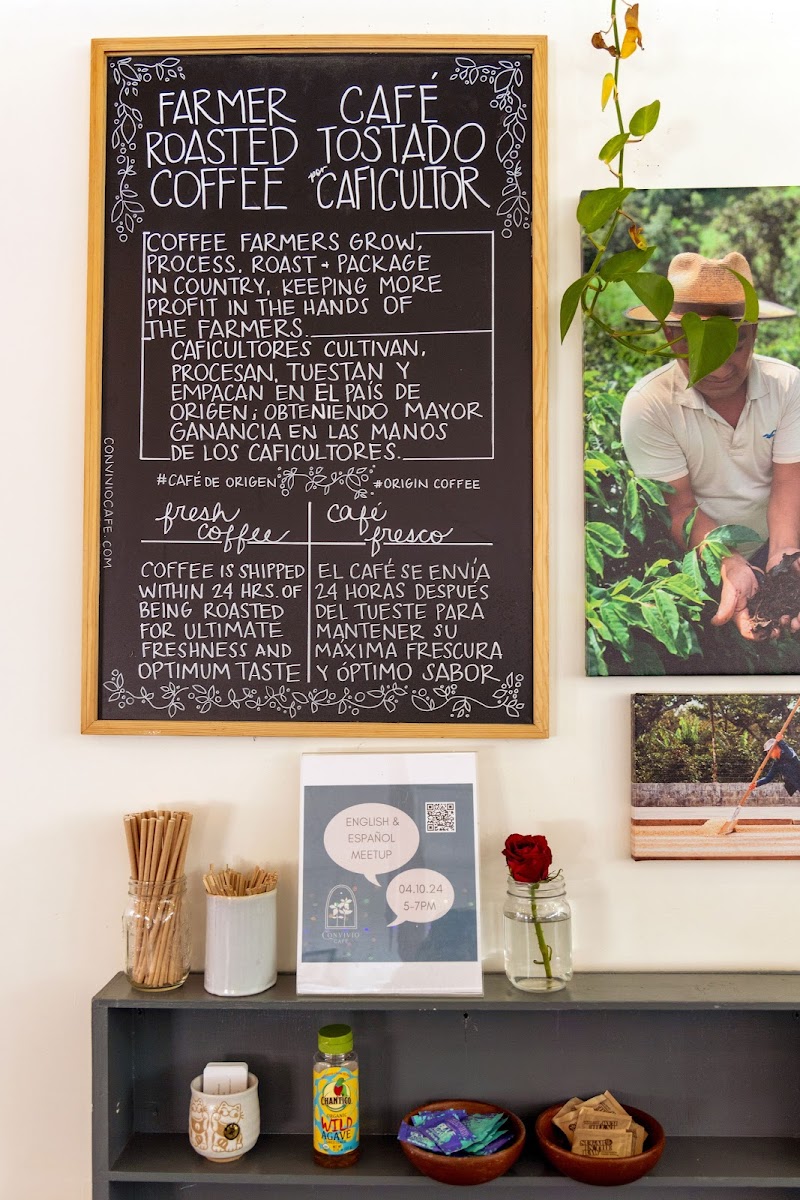 FARMER
ROASTED
COFFEE
CAFÉ
TOSTADO
por CAFICULTOR
COFFEE FARMERS GROW,
PROCESS, ROAST + PACKAGE
IN COUNTRY, KEEPING MORE
PROFIT IN THE HANDS OF
THE FARMERS.
CAFICULTORES CULTIVAN,
PROCESAN, TUESTAN Y
EMPACAN EN EL PAÍS DE
ORIGEN; OBTENIENDO MAYOR
GANANCIA EN LAS MANOS
DE LOS CAFICULTORES.
#CAFÉ DE ORIGEN
#ORIGIN COFFEE
CONVIVIOCAFE.COM
fresh
coffee
COFFEE IS SHIPPED
WITHIN 24 HRS. OF
BEING ROASTED
FOR ULTIMATE
FRESHNESS AND
OPTIMUM TASTE
café
fresco
EL CAFÉ SE ENVÍA
24 HORAS DESPUÉS
DEL TUESTE PARA
MANTENER SU
MAXIMA FRESCURA
Y ÓPTIMO SABOR
ENGLISH &
ESPAÑOL
MEETUP
04.10.24
5-7PM
CONVIVIO
CAFÉ
CHANTICO
WILD
AGAVE